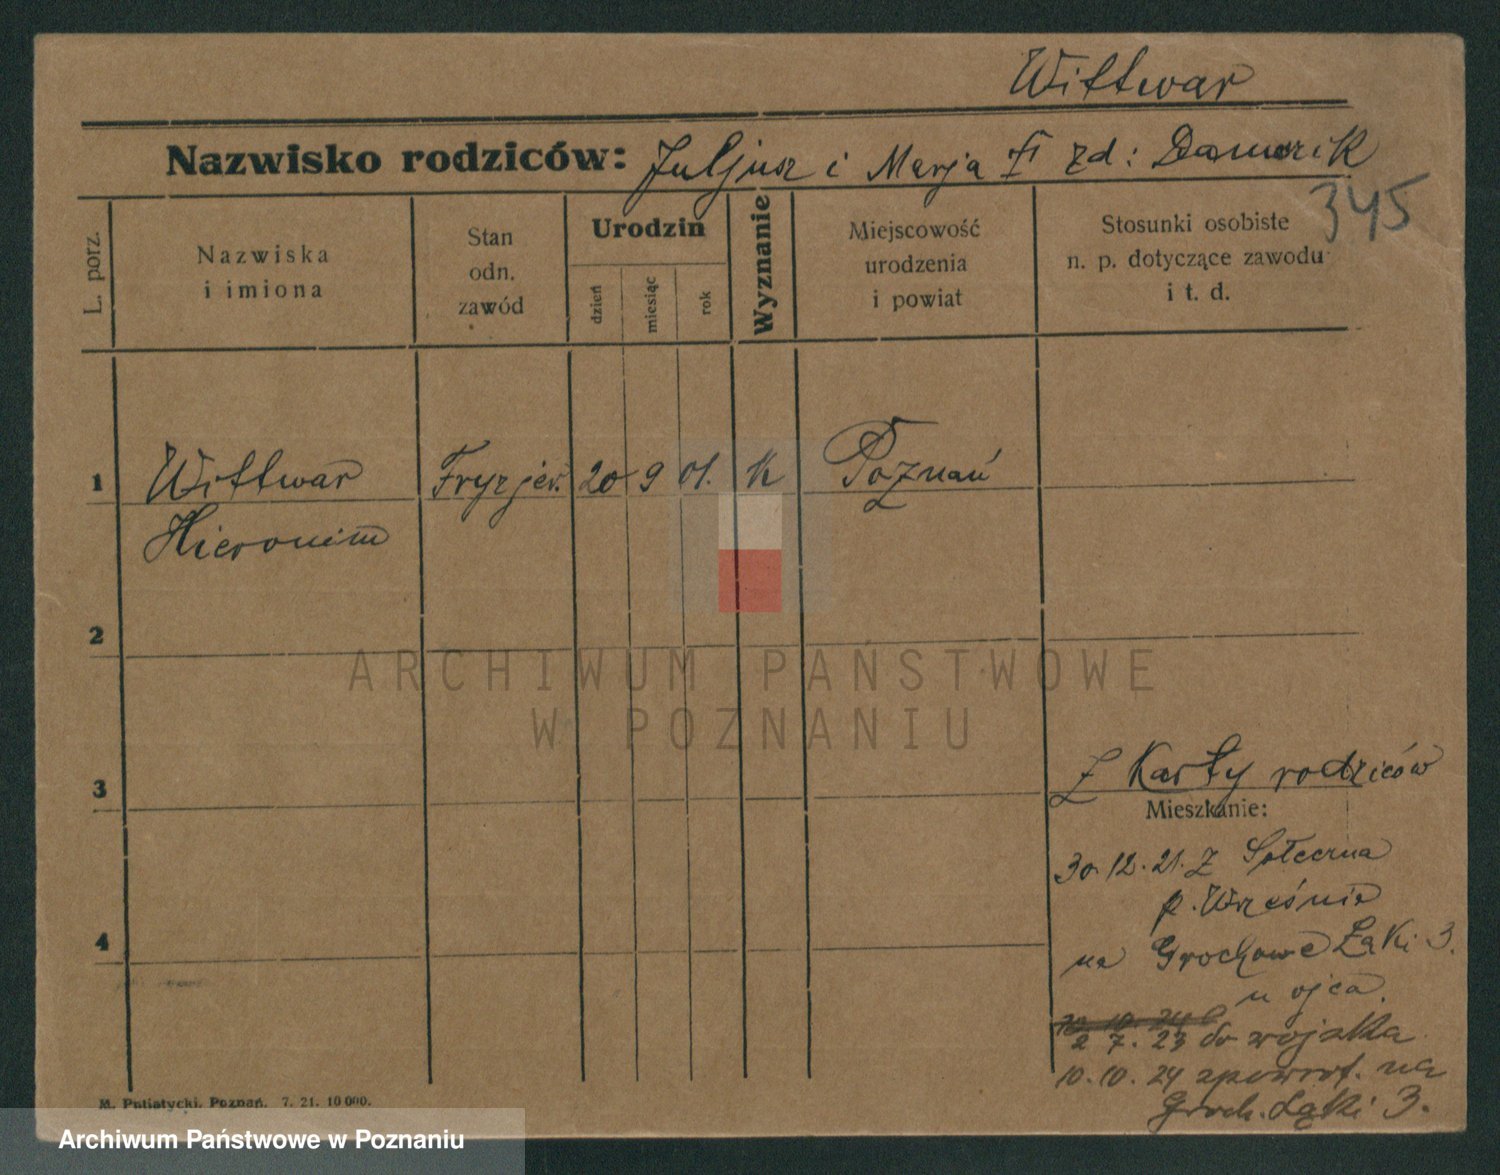 Wittwar
Nazwisko rodziców: Juljusz i Marja zd:
345
L. porz.
Nazwiska
i imiona
Stan
odn.
zawód
Urodzin
dzień
miesiąc
rok
Wyznanie
Miejscowość
urodzenia
i powiat
Stosunki osobiste
n. p. dotyczące zawodu
i t. d.
1 Wittwar Fryzjer. 20 9 01. K Poznań
Hieronim
2
ARCHIWUM PAŃSTWOWE
W POZNANIU
Z Karty rodziców
3
Mieszkanie:
30.12.21. Z
p. Września
4
na Grochowe Łąki 3.
u ojca.
2 7. 23 do wojska
10.10. 24 zpowrot. na
Groch. Łąki 3.
M. Putiatycki, Poznań. 7. 21. 10000.
Archiwum Państwowe w Poznaniu